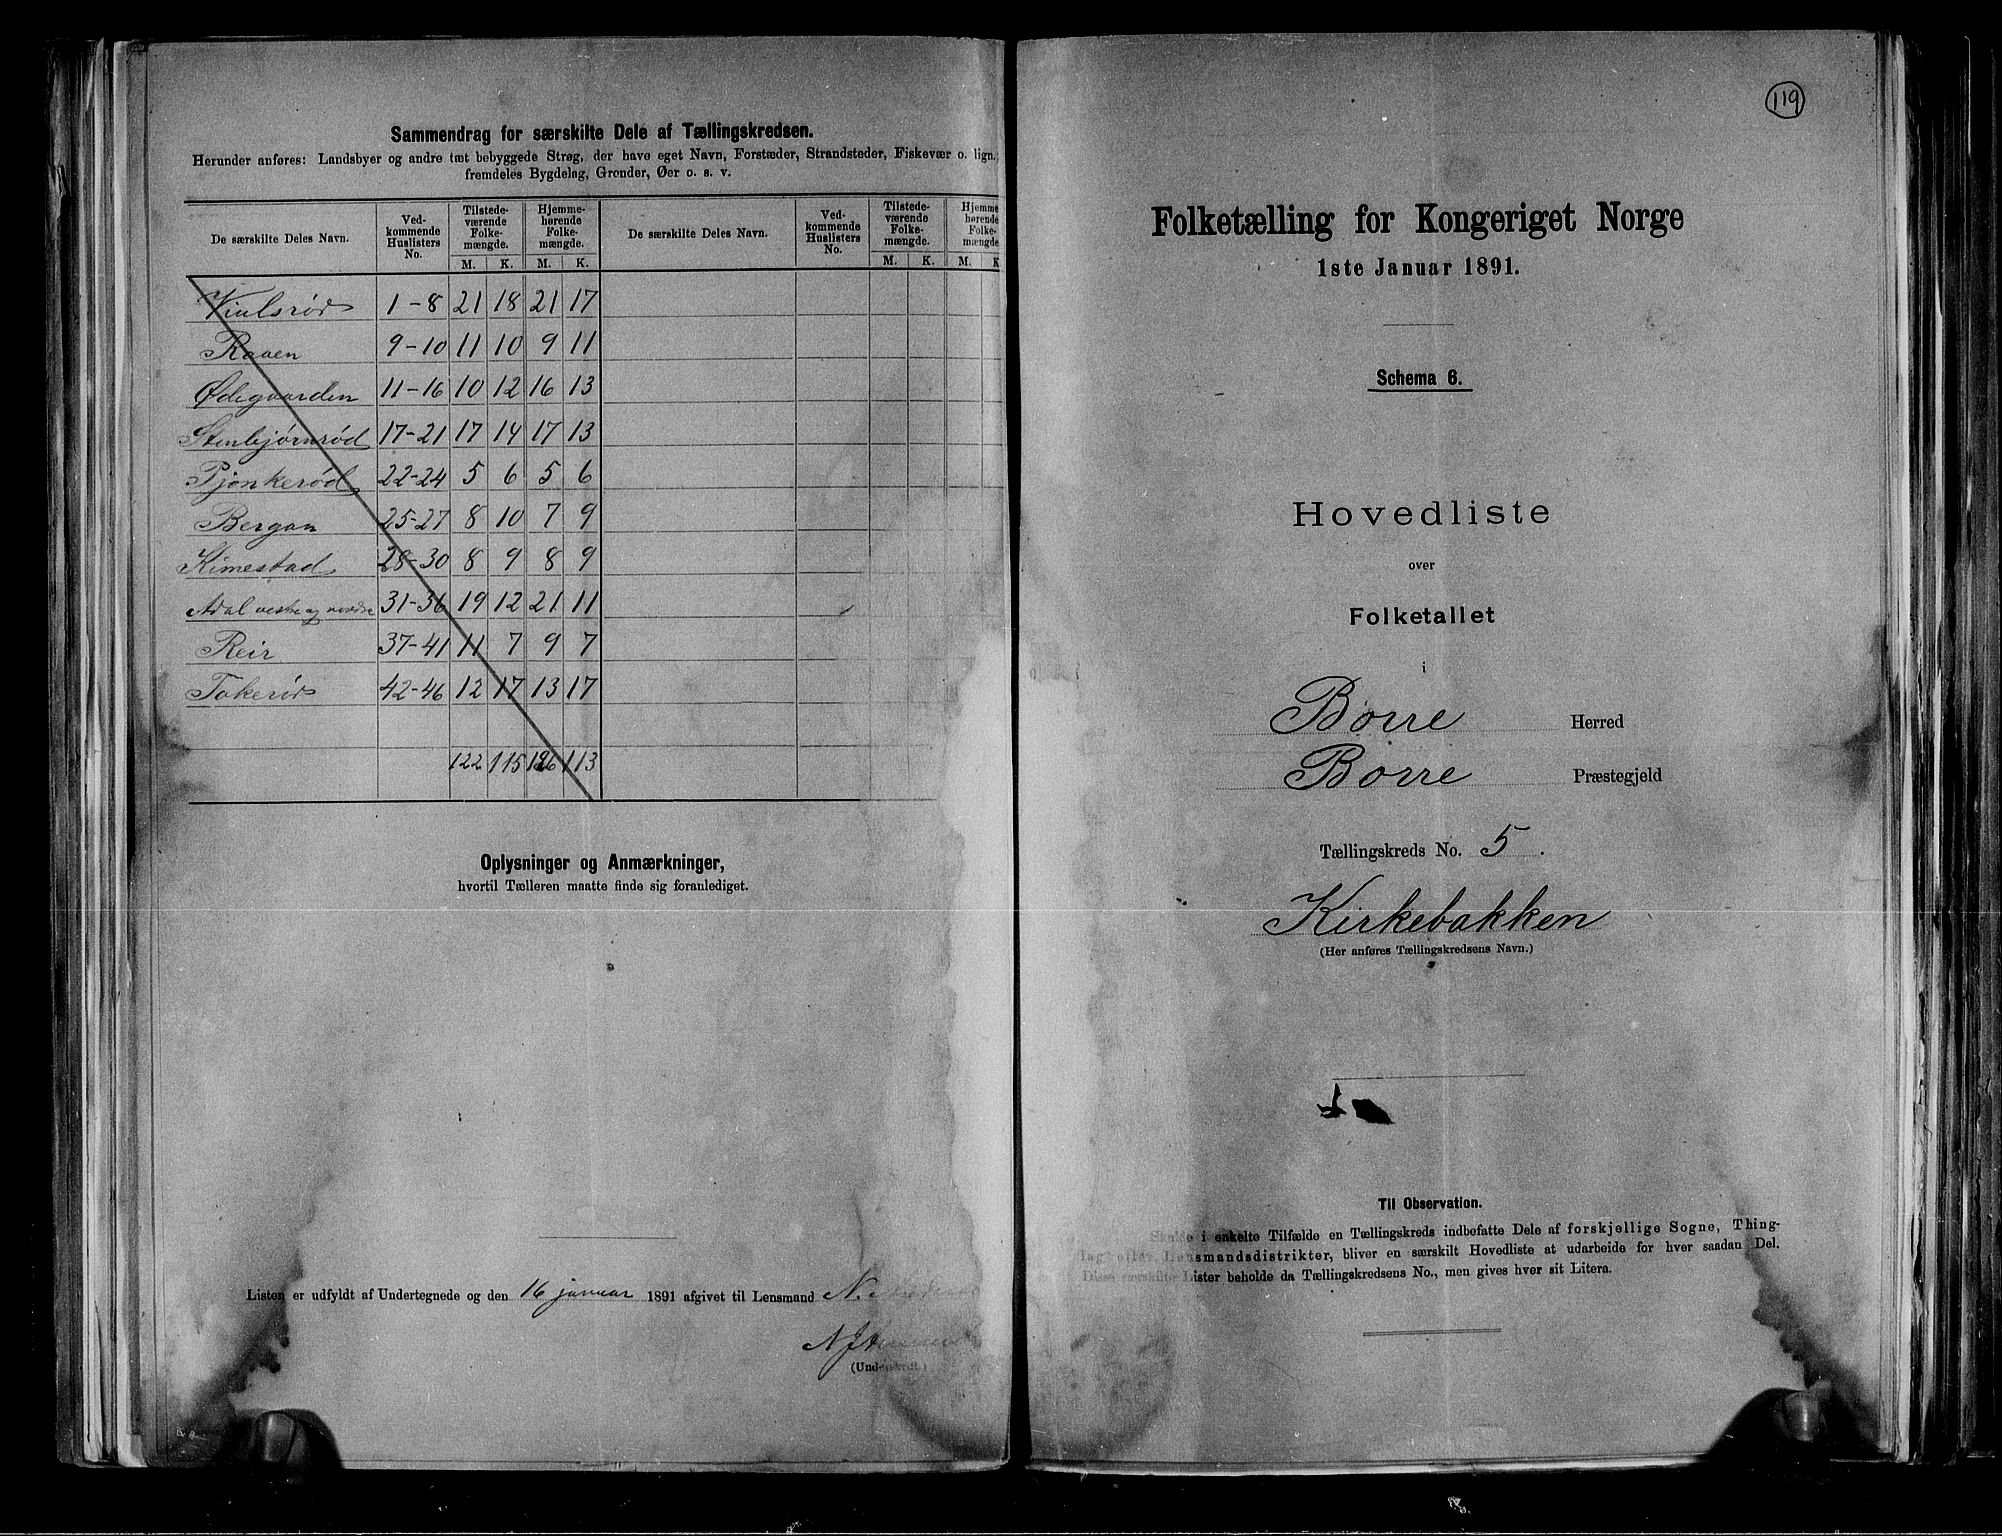 Sammendrag for særskilte Dele af Tællingskredsen.
Herunder anføres: Landsbyer og andre tæt bebyggede Strøg, der have eget Navn, Forstæder, Strandsteder, Fiskevær o. lign.,
fremdeles Bygdelag, Grender, Øer o. s. v.
De særskilte Deles Navn. Ved-kommende Huslisters No. Tilstede-værende Folke-mængde. Hjemme-hørende Folke-mængde. De særskilte Deles Navn. Ved-kommende Huslisters No. Tilstede-værende Folke-mængde. Hjemme-hørende Folke-mængde
M. K. M. K. M. K. M. K
1-8 21 18 21 17
Raaen 9-10 11 10 9 11
Ødegaarden 11-16 10 12 16 13
Stenbjørnrød 17-21 17 14 17 13
Pjonkerød 22-24 5 6 5 6
Bergan 25-27 8 10 7 9
Kimestad 28-30 8 9 8 9
Adal vestre og nordre 31-36 19 12 21 11
Reir 37-41 11 7 9 7
Tokerød 42-46 12 17 13 17
122 115 126 113
Oplysninger og Anmærkninger,
hvortil Tælleren maatte finde sig foranlediget.
Listen er udfyldt af Undertegnede og den 16 januar 1891 afgivet til Lensmand N.
(Underskrift.)
119
Folketælling for Kongeriget Norge
1ste Januar 1891.
Schema 6.
Hovedliste
over
Folketallet
i
Borre Herred
Borre Præstegjeld
Tællingskreds No. 5.
Kirkebakken
(Her anføres Tællingskredsens Navn.)
Til Observation.
Skulde i enkelte Tilfælde en Tællingskreds indbefatte Dele af forskjellige Sogne, Thing-
lag eller Lensmandsdistrikter, bliver en særskilt Hovedliste at udarbeide for hver saadan Del.
Disse særskilte Lister beholde da Tællingskredsens No., men gives hver sit Litera.